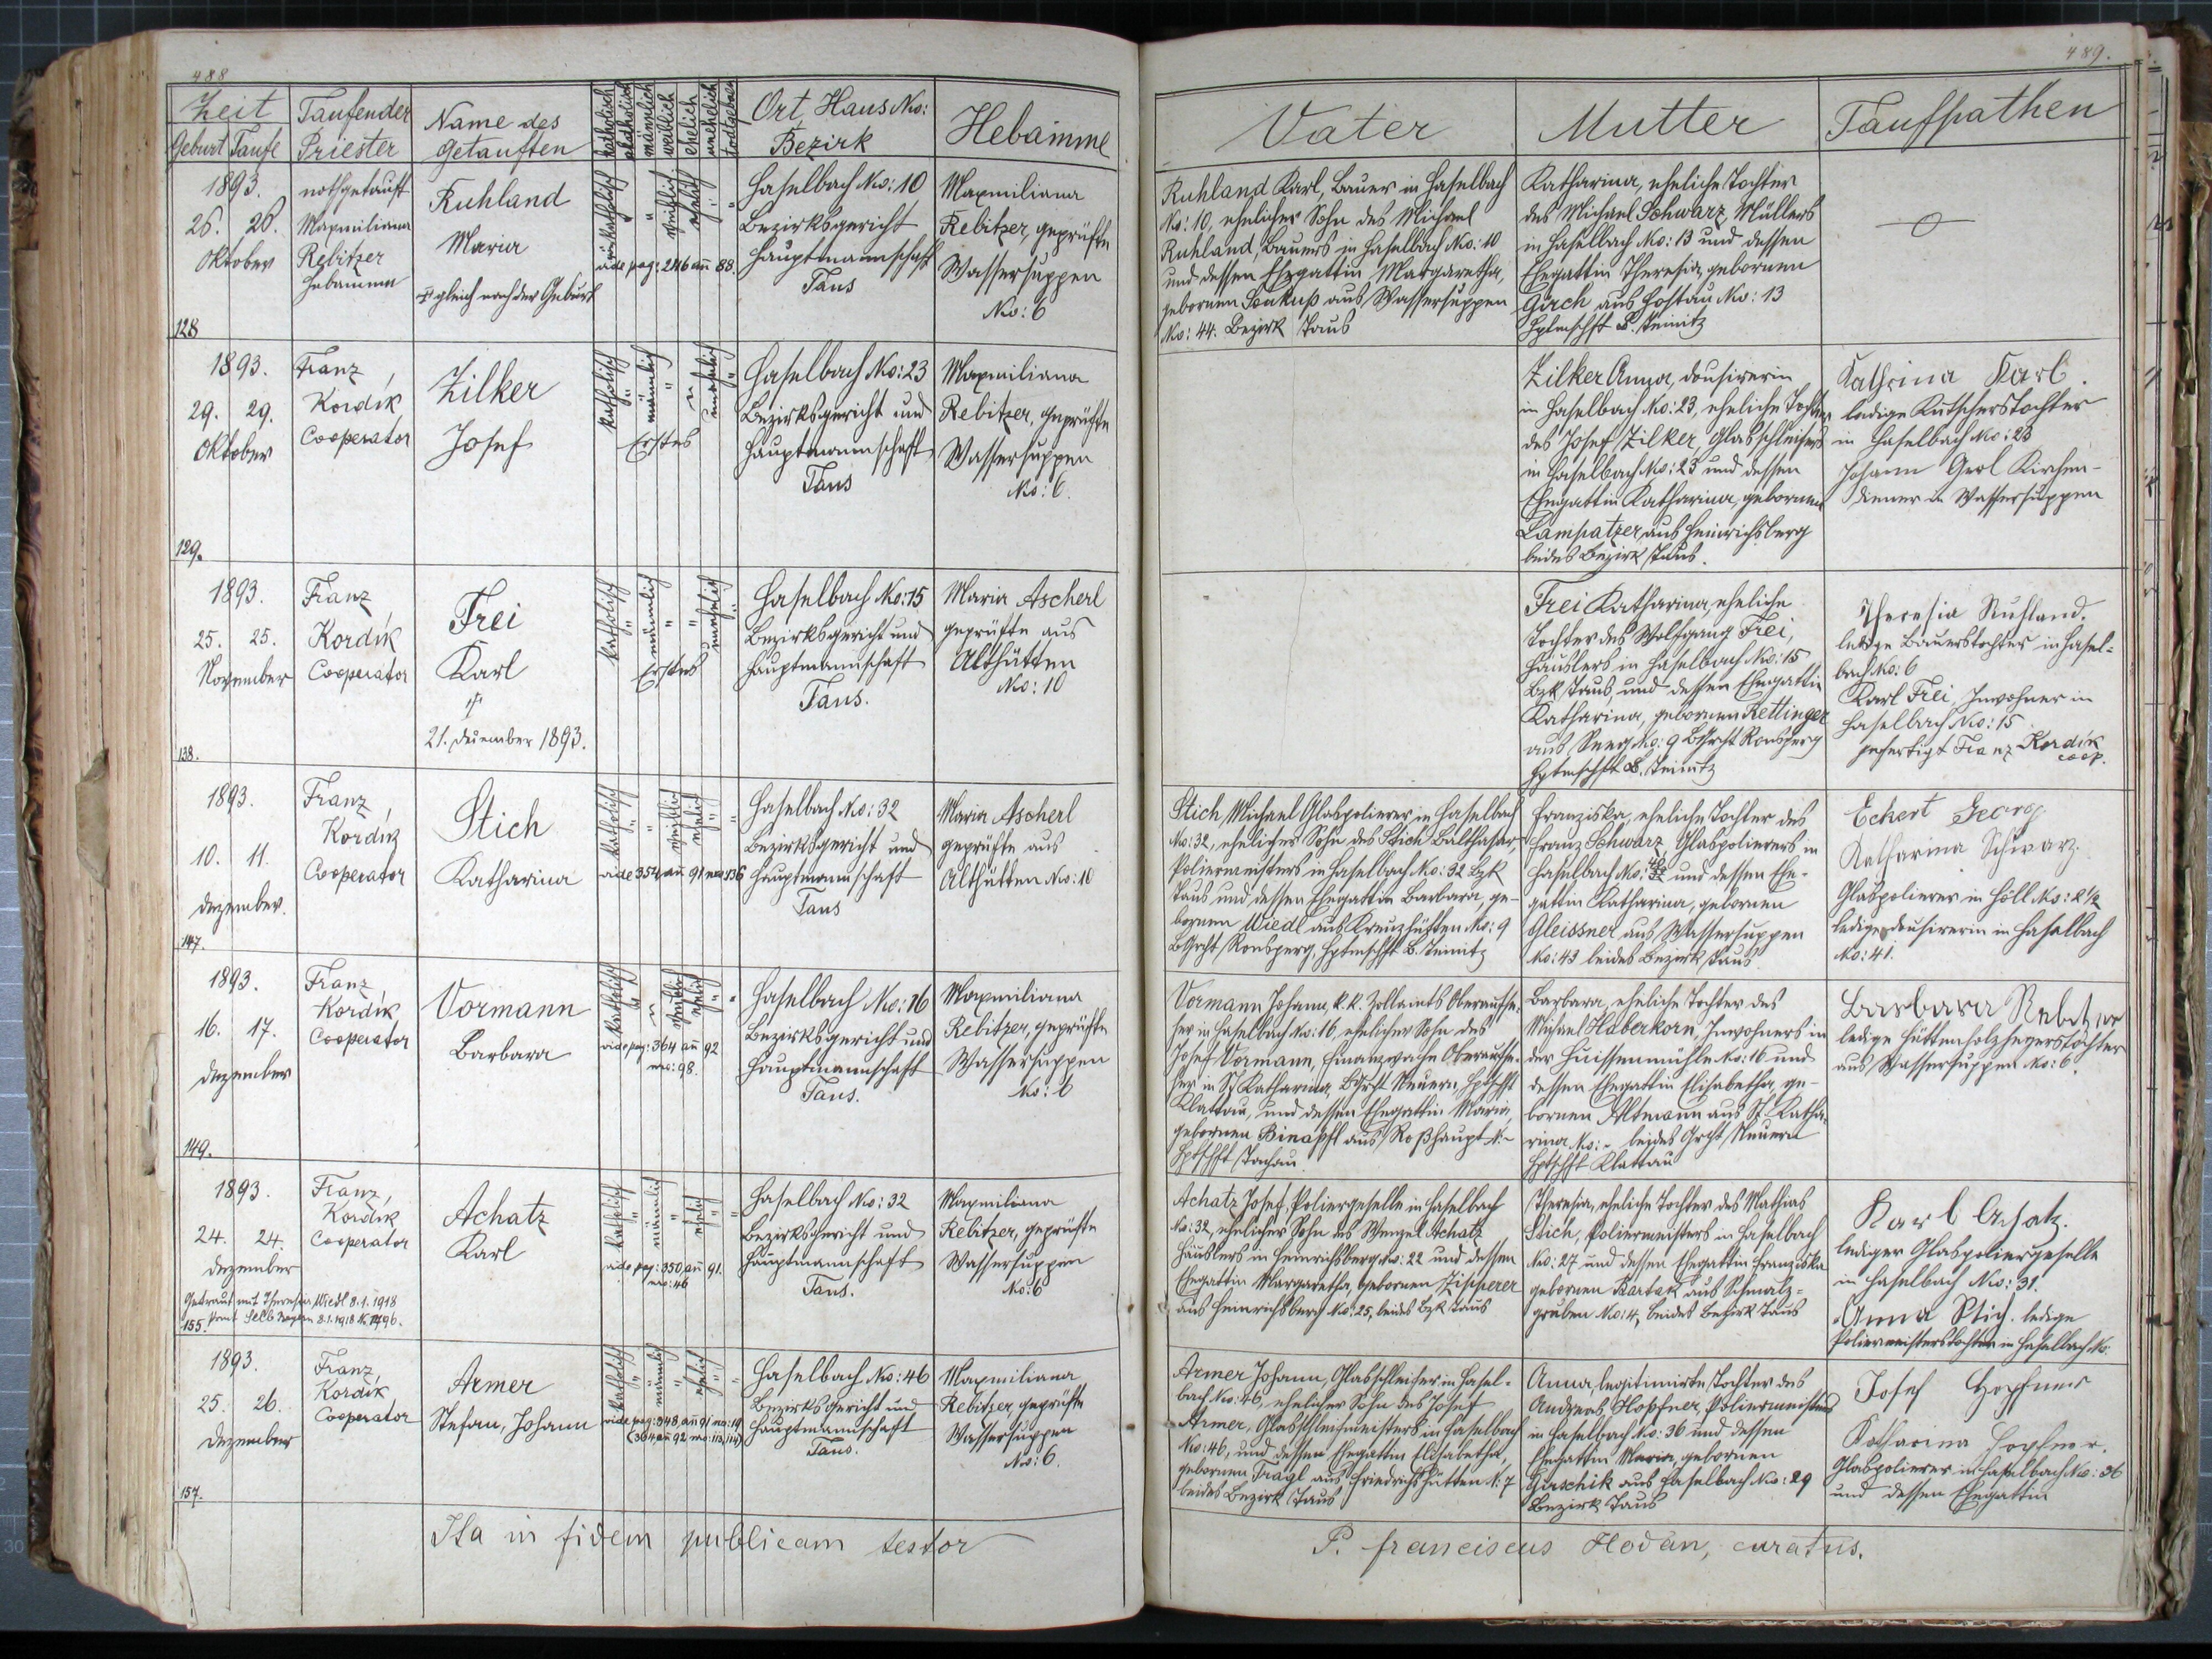 488
Zeit
Geburt Taufe
Taufender
Priester
Name des
Getauften
katholisch
akatholisch
männlich
weiblich
ehelich
unehelich
todtgeboren
Ort, Haus No:
Bezirk
Hebamme
1893.
26. 26.
Oktober
128
nothgetauft
Maxmiliana
Rebitzer
Hebamme
Ruhland
Maria
† gleich nach der Geburt
vide pag: 246 an 88.
Haselbach No: 10
Bezirksgericht
Hauptmannschaft
Taus
Maxmiliana
Rebitzer, geprüfte
Wassersuppen
No: 6
1893.
29. 29.
Oktober
129.
Franz
Kordík
Cooperator
Zilker
Josef
katholisch
männlich
unehelich
Erstes
Haselbach No: 23
Bezirksgericht und
Hauptmannschaft
Taus
Maxmiliana
Rebitzer, geprüfte
Wassersuppen
No: 6.
1893.
25. 25.
November
138.
Franz
Kordík
Cooperator
Frei
Karl
†
21. Dezember 1893.
katholisch
männlich
unehelich
Erstes
Haselbach No: 15
Bezirksgericht und
Hauptmannschaft
Taus.
Maria Ascherl
geprüfte aus
Althütten
No: 10
1893.
10. 11.
Dezember.
147.
Franz
Kordík
Cooperator
Stich
Katharina
katholisch
weiblich
ehelich
vide 354 an 91 nro 136
Haselbach No: 32
Bezirksgericht und
Hauptmannschaft
Taus
Maria Ascherl
geprüfte aus
Althütten No: 10
1893.
16. 17.
Dezember
149.
Franz
Kordík
Cooperator
Vormann
Barbara
katholisch
weiblich
ehelich
vide pag: 364 an 92
nro: 98.
Haselbach No: 16
Bezirksgericht und
Hauptmannschaft
Taus.
Maxmiliana
Rebitzer, geprüfte
Wassersuppen
No: 6
1893.
24. 24.
Dezember
Getraut mit Theresia Wiedl 8.1.1918
155.
Franz,
Kordík
Cooperator
Achatz
Karl
katholisch
männlich
ehelich
vide pag: 350 an 91.
nro: 46
Haselbach No: 32
Bezirksgericht und
Hauptmannschaft
Taus.
Maxmiliana
Rebitzer, geprüfte
Wassersuppen
No: 6
1893.
25. 26.
Dezember
157.
Franz,
Kordík
Cooperator
Armer
Stefan, Johann
katholisch
männlich
ehelich
vide pag: 348 an 91 nro: 19
(364 an 92 nro: 113, 114)
Haselbach No: 46
Bezirksgericht und
Hauptmannschaft
Taus.
Maxmiliana
Rebitzer, geprüfte
Wassersuppen
No: 6.
Ita in fidem publicam testor
489.
Vater
Mutter
Taufpathen
Ruhland Karl, Bauer in Haselbach
No: 10, ehelicher Sohn des Michael
Ruhland, Bauers in Haselbach No: 10
und dessen Ehegattin Margaretha,
gebornen Soukup aus Wassersuppen
No: 44. Bezirk Taus
Katharina, eheliche Tochter
des Michael Schwarz, Müllers
in Haselbach No: 13 und dessen
Ehegattin Theresia, gebornen
Girch aus Hostau No: 13
Hptmschft B. Teinitz
Zilker Anna, dousirerin
in Haselbach No: 23, eheliche Tochter
des Josef Zilker, Glasschleifers
in Haselbach No: 23 und dessen
Ehegattin Katharina, gebornen
Lampatzer, aus Heinrichsberg
beides Bezirk Taus.
Kathrina Karl.
ledige Kutscherstochter
in Haselbach No: 23
Johann Gröl Kirchen-
diener in Wassersuppen
Frei Katharina, eheliche
Tochter des Wolfgang Frei,
Häuslers in Haselbach No: 15
Bzk Taus, und dessen Ehegattin
Katharina, gebornen Rettinger
aus Seeg No: 9 BGrcht Ronsperg
Hptmschft B. Teinitz
Theresia Ruhland.
ledige Bauerstochter in Hasel-
bach No: 6
Karl Frei, Inwohner in
Haselbach No: 15
gefertigt Franz Kordík
coop.
Stich Michael Glaspolierer in Haselbach
No: 32, ehelicher Sohn des Stich Balthasar,
Poliermeisters in Haselbach No: 32 Bzk
Taus und dessen Ehegattin Barbara, ge-
bornen Wiedl aus Kreuzhütten No: 9
BGrcht Ronsperg, Hptmschft B. Teinitz
Franziska, eheliche Tochter des
Franz Schwarz Glaspolierers in
Haselbach No: und dessen Ehe-
gattin Katharina, gebornen
Gleissner aus Wassersuppen
No: 43 beides Bezirk Taus
Eckert Georg
Katharina Schwarz.
Glaspolierer in Höll No: 2½
ledige dousirerin in Haselbach
No: 41.
Vormann Johann, k. k. Zollamts Oberaufse-
her in Haselbach No: 16, ehelicher Sohn des
Josef Vormann, Finanzwache Oberaufse-
her in St Katharina, BGrcht Neuern, Hptschft
Klattau, und dessen Ehegattin Maria,
gebornen Binapfl aus Roßhaupt N: -
Hptschft Tachau
Barbara, eheliche Tochter des
Michael Haberkorn, Inwohners in
der Huissenmühle No: 16 und
dessen Ehegattin Elisabetha, ge-
bornen Altmann aus St. Katha-
rina No: - beides Grcht Neuern
Hptschft Klattau
Barbara Rebitzer
ledige Hüttenholzhegerstochter
aus Wassersuppen No: 6.
Achatz Josef, Poliergeselle in Haselbach
No: 32, ehelicher Sohn des Wenzel Achatz
Häuslers in Heinrichsberg No: 22 und dessen
Ehegattin Margaretha, gebornen Zipperer
aus Heinrichsberg No: 25, beides Bzk Taus
Theresia, eheliche Tochter des Mathias
Stich, Poliermeisters in Haselbach
No: 27 und dessen Ehegattin Franziska
gebornen Bartak aus Schmalz-
gruben No: 4, beides Bezirk Taus
Karl Achatz.
lediger Glaspoliergeselle
in Haselbach No: 31.
Anna Stich. ledige
Poliermeisterstochter in Haselbach No.
Armer Johann, Glasschleifer in Hasel-
bach No: 46, ehelicher Sohn des Josef
Armer, Glasschleifmeisters in Haselbach
No: 46, und dessen Ehegattin Elisabetha,
gebornen Fragl aus Friedrichshütten N: 7
beides Bezirk Taus
Anna, legitimirte Tochter des
Andreas Hopfner, Poliermeisters
in Haselbach No: 36 und dessen
Ehegattin Maria, gebornen
Girschik aus Haselbach No: 29
Bezirk Taus
Josef Hopfner
Katharina Hopfner.
Glaspolierer in Haselbach No: 36
und dessen Ehegattin
P. franciscus Hodan, curatus.